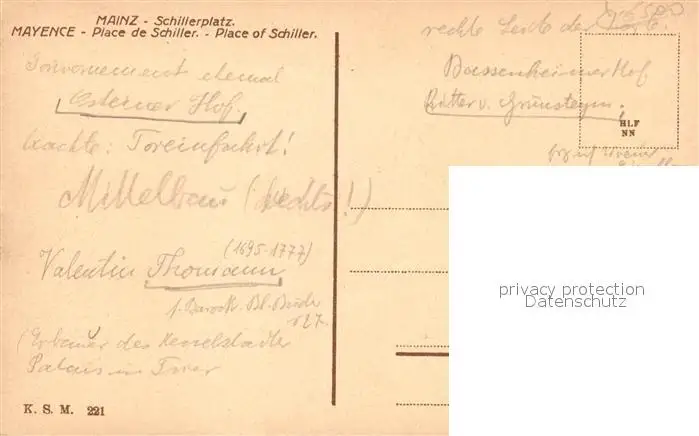 MAINZ - Schillerplatz.
MAYENCE - Place de Schiller. - Place of Schiller.
Gouvernement ehemal
Osteiner Hof.
beachte: Toreinfahrt!
Mittelbau (rechts!)
(1695-1777)
Valentin Thomann
s. Barock. Bl. Bücher
S 27.
(Erbauer des Kesselstadter
Palais in Trier
K. S. M. 221
rechte Seite der
Bassenheimer Hof
Ritter v. Grünsteyn.
HLF
NN
privacy protection
Datenschutz